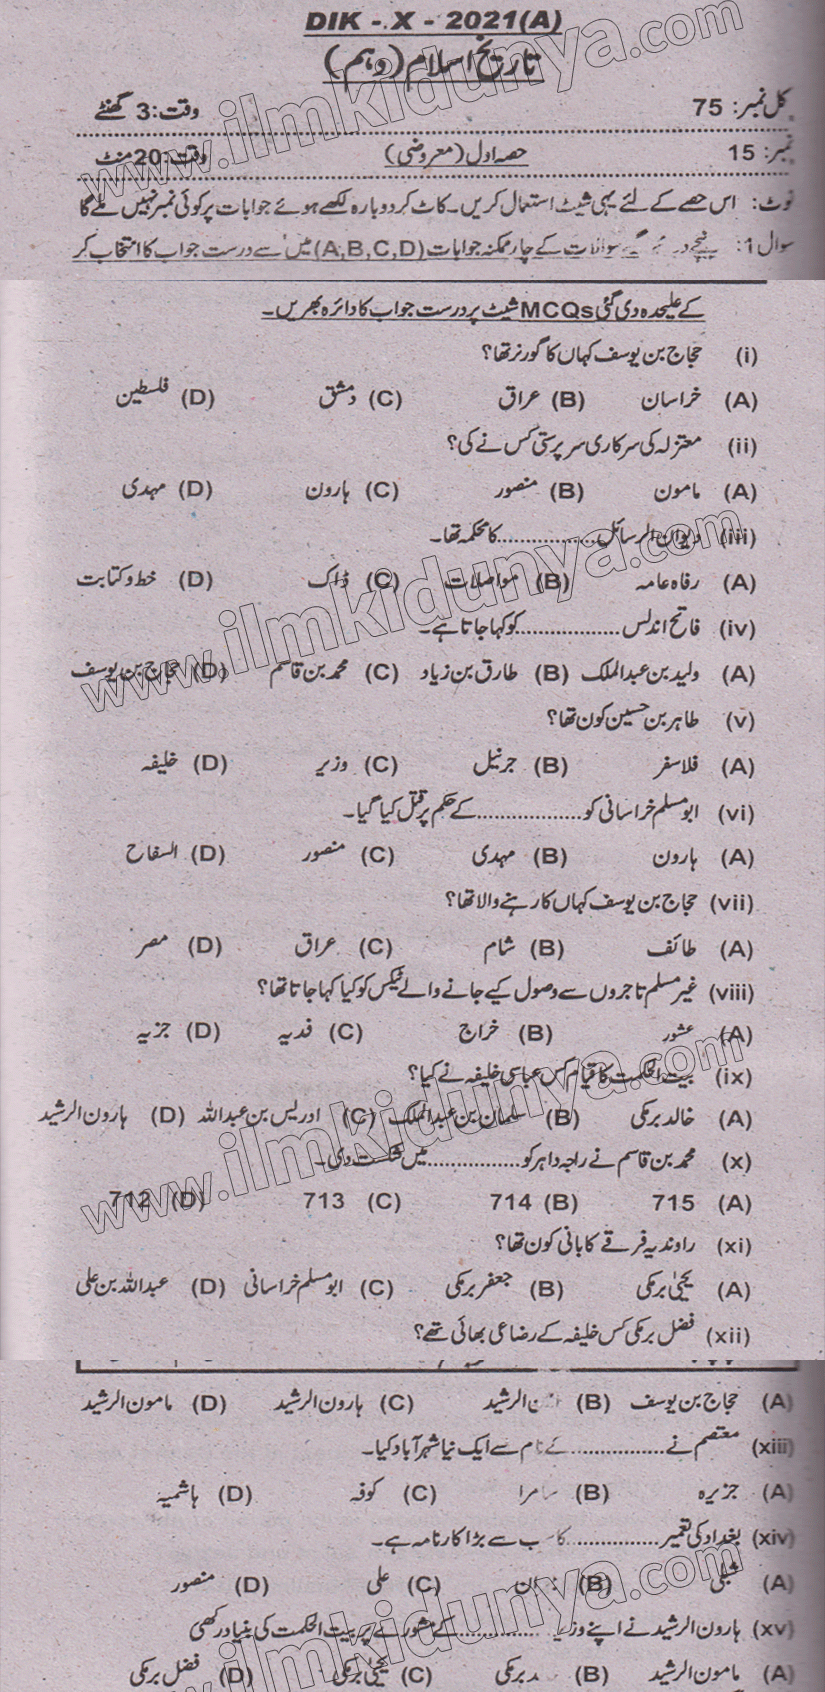 DIK - X - 2021(A)
تاریخ اسلام (دہم)
کل نمبر: 75 وقت: 3 گھنٹے
نمبر: 15 حصہ اول (معروضی) وقت: 20 منٹ
نوٹ: اس حصے کے لئے یہی شیٹ استعمال کریں۔ کاٹ کر دوبارہ لکھے ہوئے جوابات پر کوئی نمبر نہیں ملے گا
سوال 1: نیچے سوالات کے چار ممکنہ جوابات (A,B,C,D) میں سے درست جواب کا انتخاب کر
کے علیحدہ دی گئی MCQs شیٹ پر درست جواب کا دائرہ بھریں۔
(i) حجاج بن یوسف کہاں کا گورنر تھا؟
(A) خراسان (B) عراق (C) دمشق (D) فلسطین
(ii) معتزلہ کی سرکاری سرپرستی کس نے کی؟
(A) مامون (B) منصور (C) ہارون (D) مہدی
(iii) دیوان الرسائل.................کا محکمہ تھا۔
(A) رفاہ عامہ (B) مواصلات (C) ڈاک (D) خط و کتابت
(iv) فاتح اندلس.................کو کہا جاتا ہے۔
(A) ولید بن عبدالملک (B) طارق بن زیاد (C) محمد بن قاسم (D) حجاج بن یوسف
(v) طاہر بن حسین کون تھا؟
(A) فلاسفر (B) جرنیل (C) وزیر (D) خلیفہ
(vi) ابو مسلم خراسانی کو.................کے حکم پر قتل کیا گیا۔
(A) ہارون (B) مہدی (C) منصور (D) السفاح
(vii) حجاج بن یوسف کہاں کا رہنے والا تھا؟
(A) طائف (B) شام (C) عراق (D) مصر
(viii) غیر مسلم تاجروں سے وصول کیے جانے والے ٹیکس کو کیا کہا جاتا تھا؟
(A) عشور (B) خراج (C) فدیہ (D) جزیہ
(ix) بیت الحکمت کا قیام کس عباسی خلیفہ نے کیا؟
(A) خالد برمکی (B) سلمان بن عبدالملک (C) ادریس بن عبداللہ (D) ہارون الرشید
(x) محمد بن قاسم نے راجہ داہر کو.................میں شکست دی۔
(A) 715 (B) 714 (C) 713 (D) 712
(xi) راوندیہ فرقے کا بانی کون تھا؟
(A) یحییٰ برمکی (B) جعفر برمکی (C) ابو مسلم خراسانی (D) عبداللہ بن علی
(xii) فضل برمکی کس خلیفہ کے رضاعی بھائی تھے؟
(A) حجاج بن یوسف (B) الرشید (C) ہارون الرشید (D) مامون الرشید
(xiii) معتصم نے.................کے نام سے ایک نیا شہر آباد کیا۔
(A) جزیرہ (B) سامرا (C) کوفہ (D) ہاشمیہ
(xiv) بغداد کی تعمیر.................کا سب سے بڑا کارنامہ ہے۔
(A) شبلی (B) (C) علی (D) منصور
(xv) ہارون الرشید نے اپنے وزیر.................کے مشورے پر بیت الحکمت کی بنیاد رکھی
(A) مامون الرشید (B) برمکی (C) یحییٰ برمکی (D) فضل برمکی
www.ilmkidunya.com
www.ilmkidunya.com
www.ilmkidunya.com
www.ilmkidunya.com